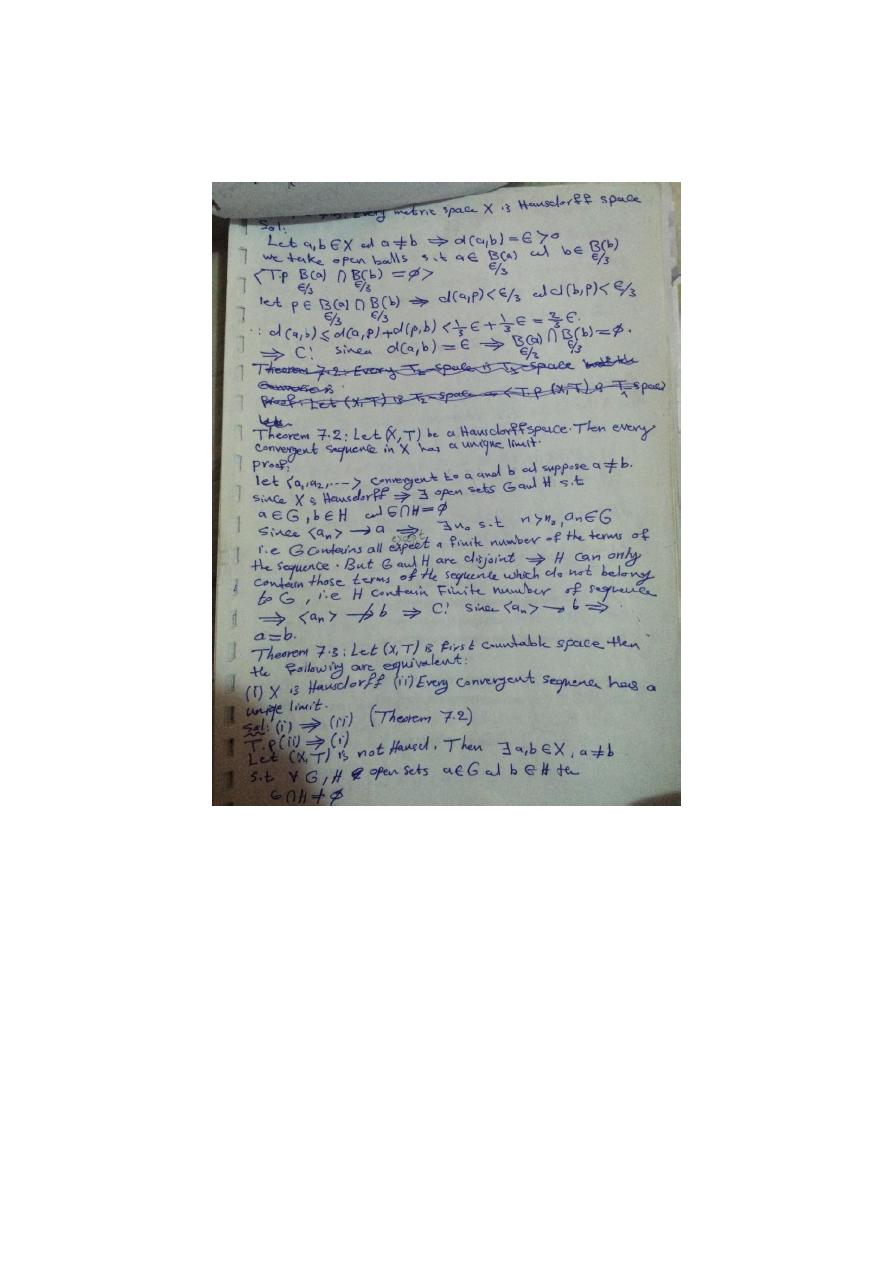 Every metric space X is Hausdorff space
Sol:
Let a,b ∈ X ad a ≠ b ⇒ d(a,b) = ε > 0
we take open balls s.t a ∈ B(a) ad b ∈ B(b)
ε/3 ε/3
<T.p B(a) ∩ B(b) = φ>
ε/3 ε/3
let p ∈ B(a) ∩ B(b) ⇒ d(a,p) < ε/3 ad d(b,p) < ε/3
ε/3 ε/3
∴ d(a,b) ≤ d(a,p) + d(p,b) < 1/3 ε + 1/3 ε = 2/3 ε.
⇒ C! since d(a,b) = ε ⇒ B(a) ∩ B(b) = φ.
ε/3 ε/3
Theorem 7.2: Every T2-space is T1-space
Proof: Let (X,T) is T2-space <T.p (X,T) is T1 space>
Theorem 7.2: Let (X,T) be a Hausdorff space. Then every
convergent sequence in X has a unique limit.
proof:
let <a1,a2,...> convergent to a and b ad suppose a ≠ b.
since X is Hausdorff ⇒ ∃ open sets G and H s.t
a ∈ G, b ∈ H ad G∩H = φ
Since <an> → a ⇒ ∃ n0 s.t n > n0, an ∈ G
except
i.e G contains all expect a finite number of the terms of
the sequence. But G and H are disjoint ⇒ H can only
contain those terms of the sequence which do not belong
to G, i.e H contain Finite number of sequence
⇒ <an> ↛ b ⇒ C! since <an> → b ⇒
a = b.
Theorem 7.3: Let (X,T) is first countable space then
the following are equivalent:
(i) X is Hausdorff (ii) Every convergent sequence has a
unique limit.
Sol: (i) ⇒ (ii) (Theorem 7.2)
T.p (ii) ⇒ (i)
Let (X,T) is not Hausd. Then ∃ a,b ∈ X, a ≠ b
s.t ∀ G, H open sets a ∈ G ad b ∈ H the
G∩H ≠ φ